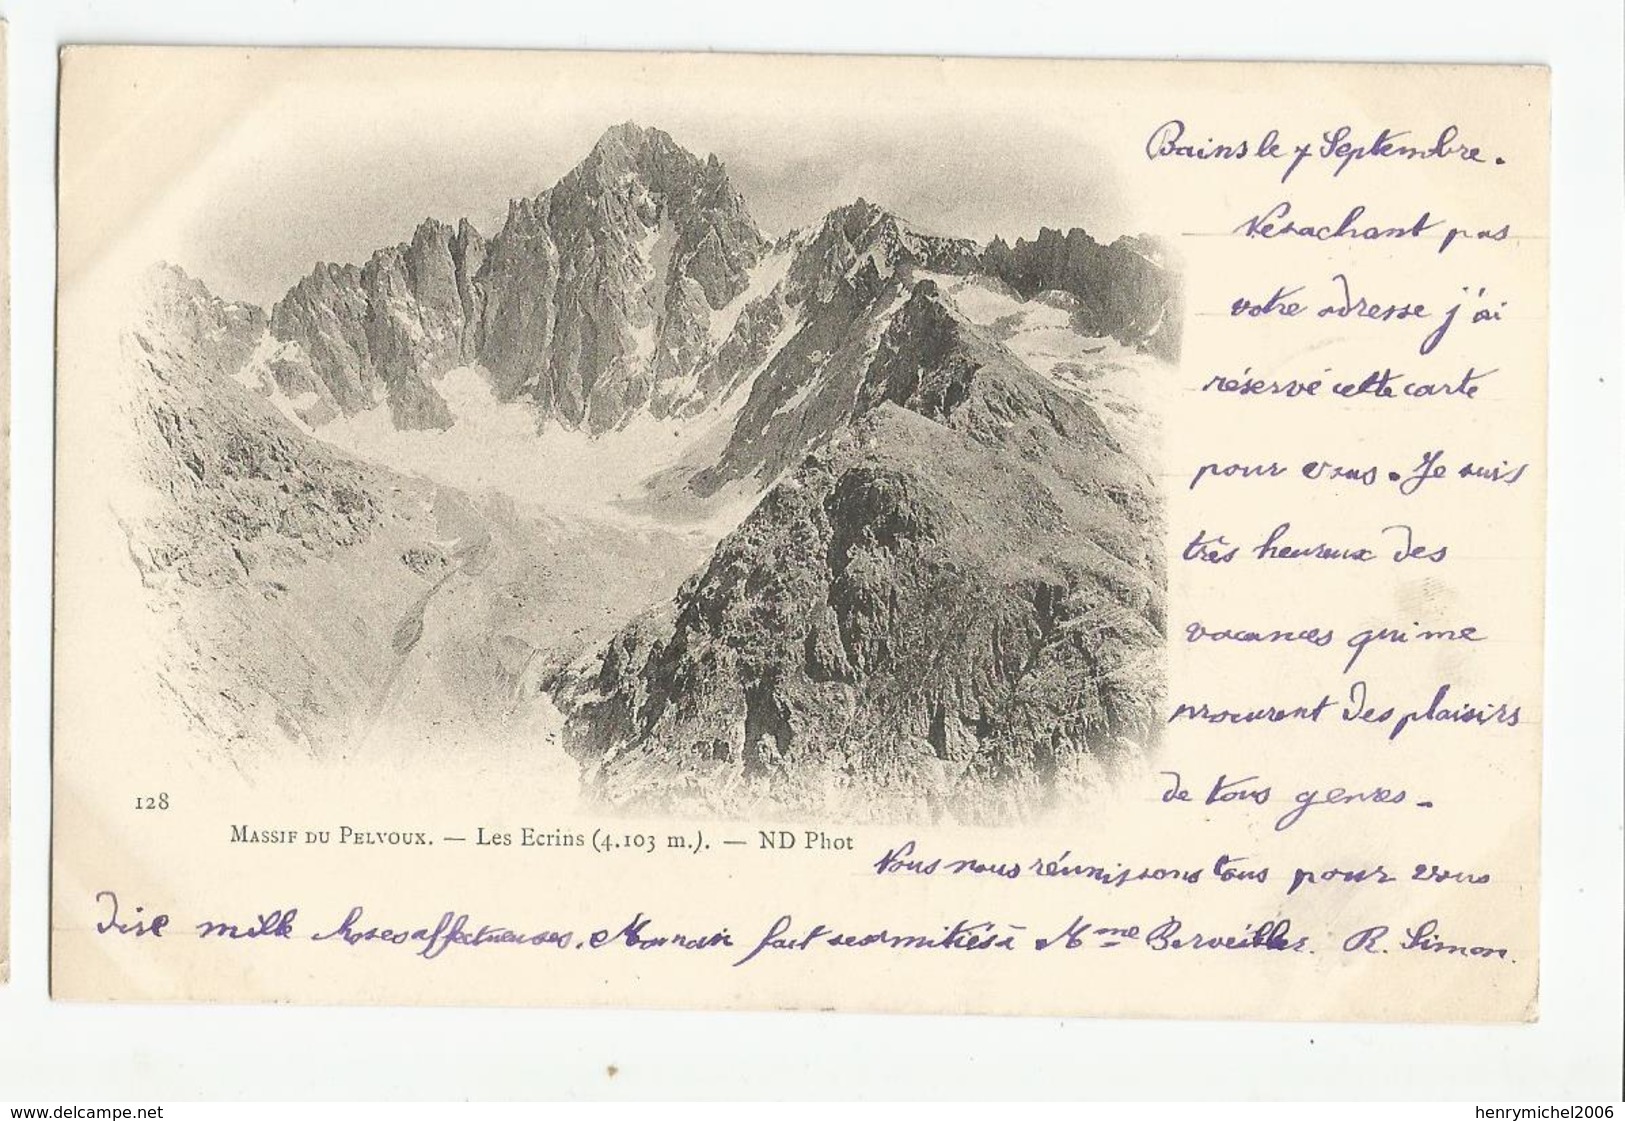 Bains le 7 Septembre.
Ne sachant pas
votre adresse j'ai
réservé cette carte
pour vous. Je suis
très heureux des
vacances qui me
procurent des plaisirs
de tous genres.
128
MASSIF DU PELVOUX. — Les Ecrins (4.103 m.). — ND Phot
Nous nous réunissons tous pour vous
dire mille choses affectueuses. Maman fait ses amitiés à Mme Berveiller. R. Simon.
www.delcampe.net
henrymichel2006